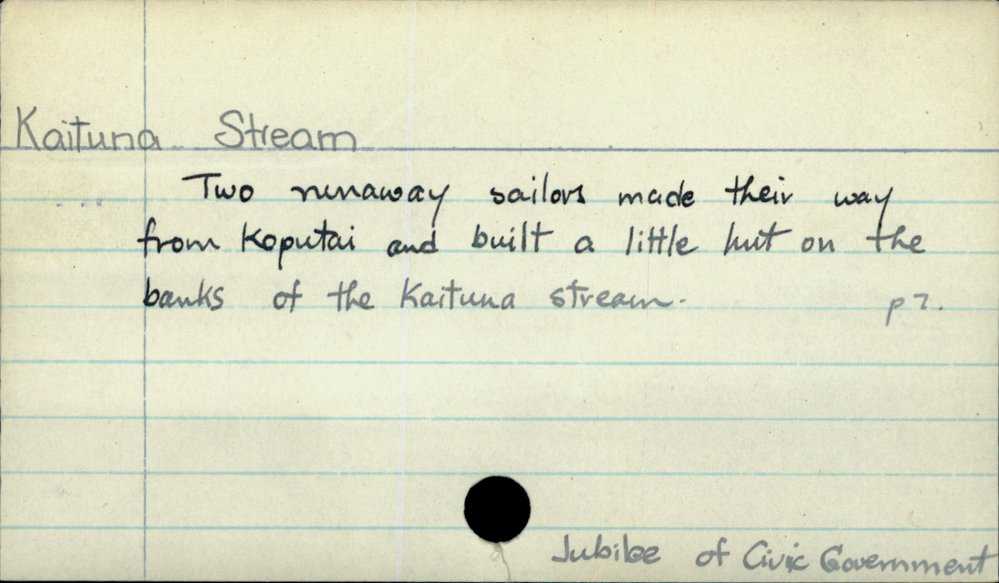 Kaituna Stream
Two runaway sailors made their way
from Koputai and built a little hut on the
banks of the Kaituna stream. p7.
Jubilee of Civic Government